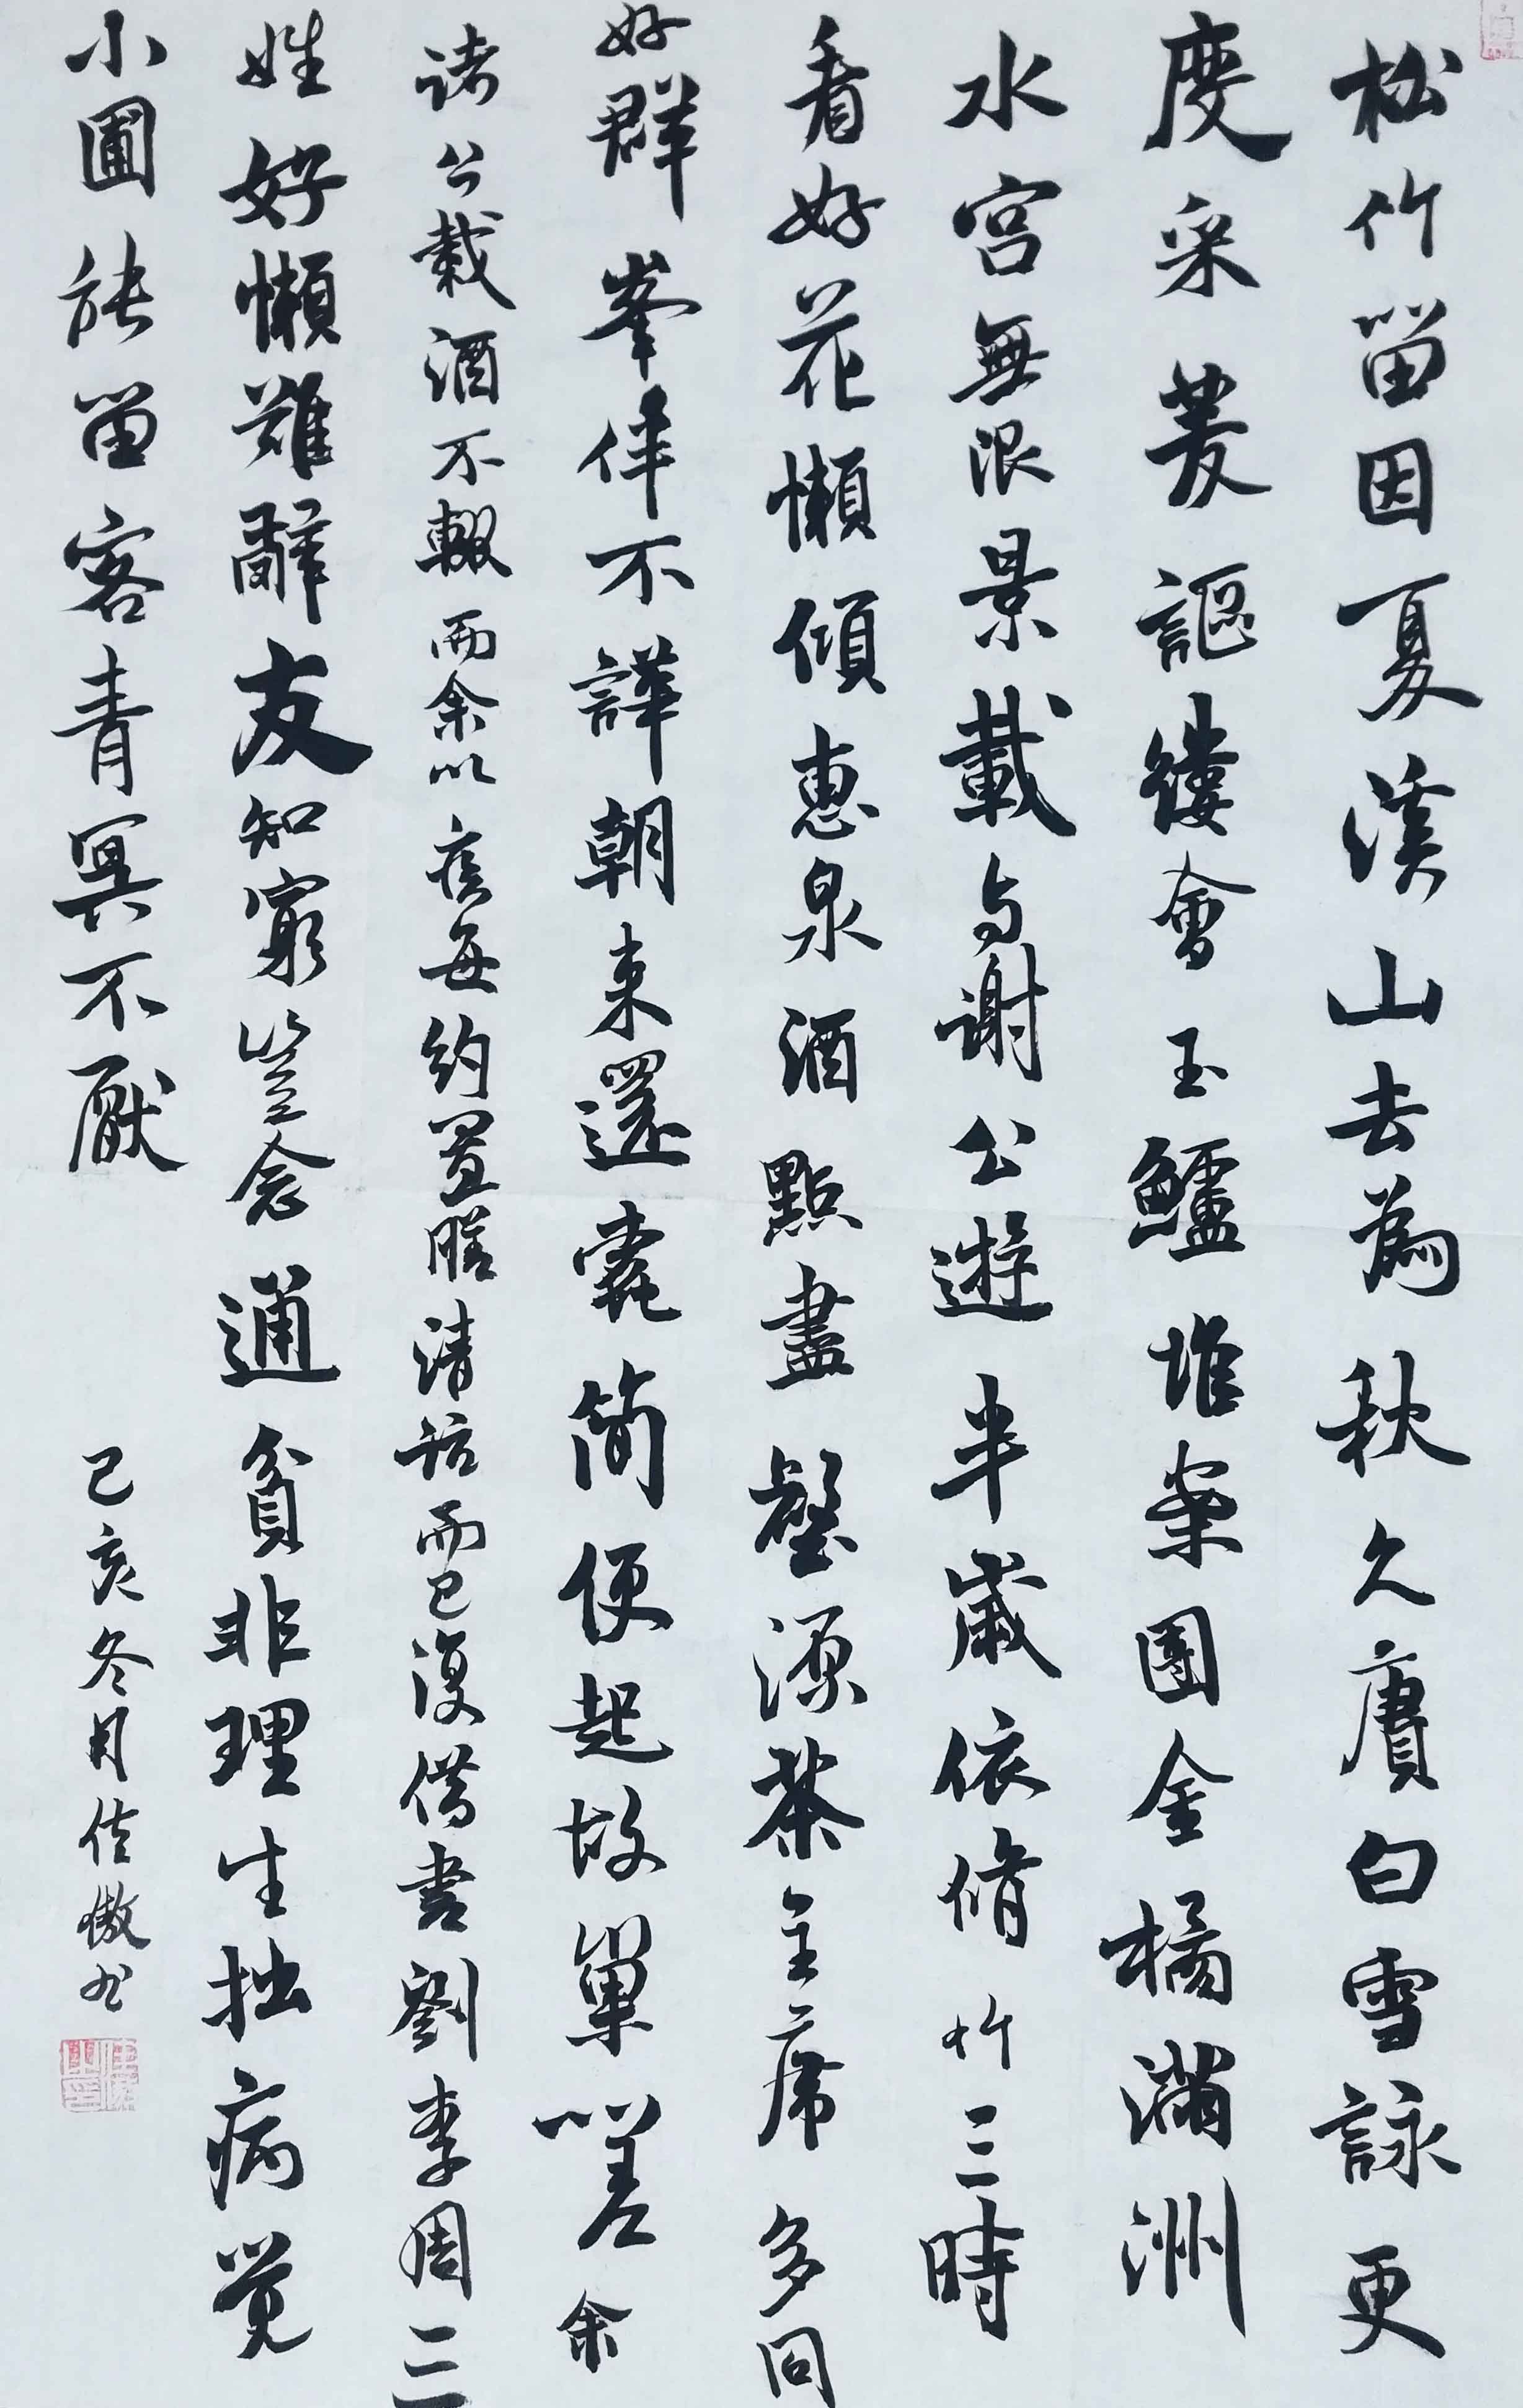 松竹留因夏溪山去為秋久賡白雪詠更
度采菱謳縷會玉鱸堆案團金橘滿洲
水宮無限景載与謝公遊半歲依脩竹三時
看好花懶傾惠泉酒點盡壑源茶主席多同
好群峯伴不譁朝来還蠹簡便起故巢嗟余
諸公載酒不輟而余以疾每約置膳清話而已復借書劉李周三
姓好懶難辭友知窮豈念通貧非理生拙病覺
小圃能留客青冥不厭
己亥冬月佳傲书